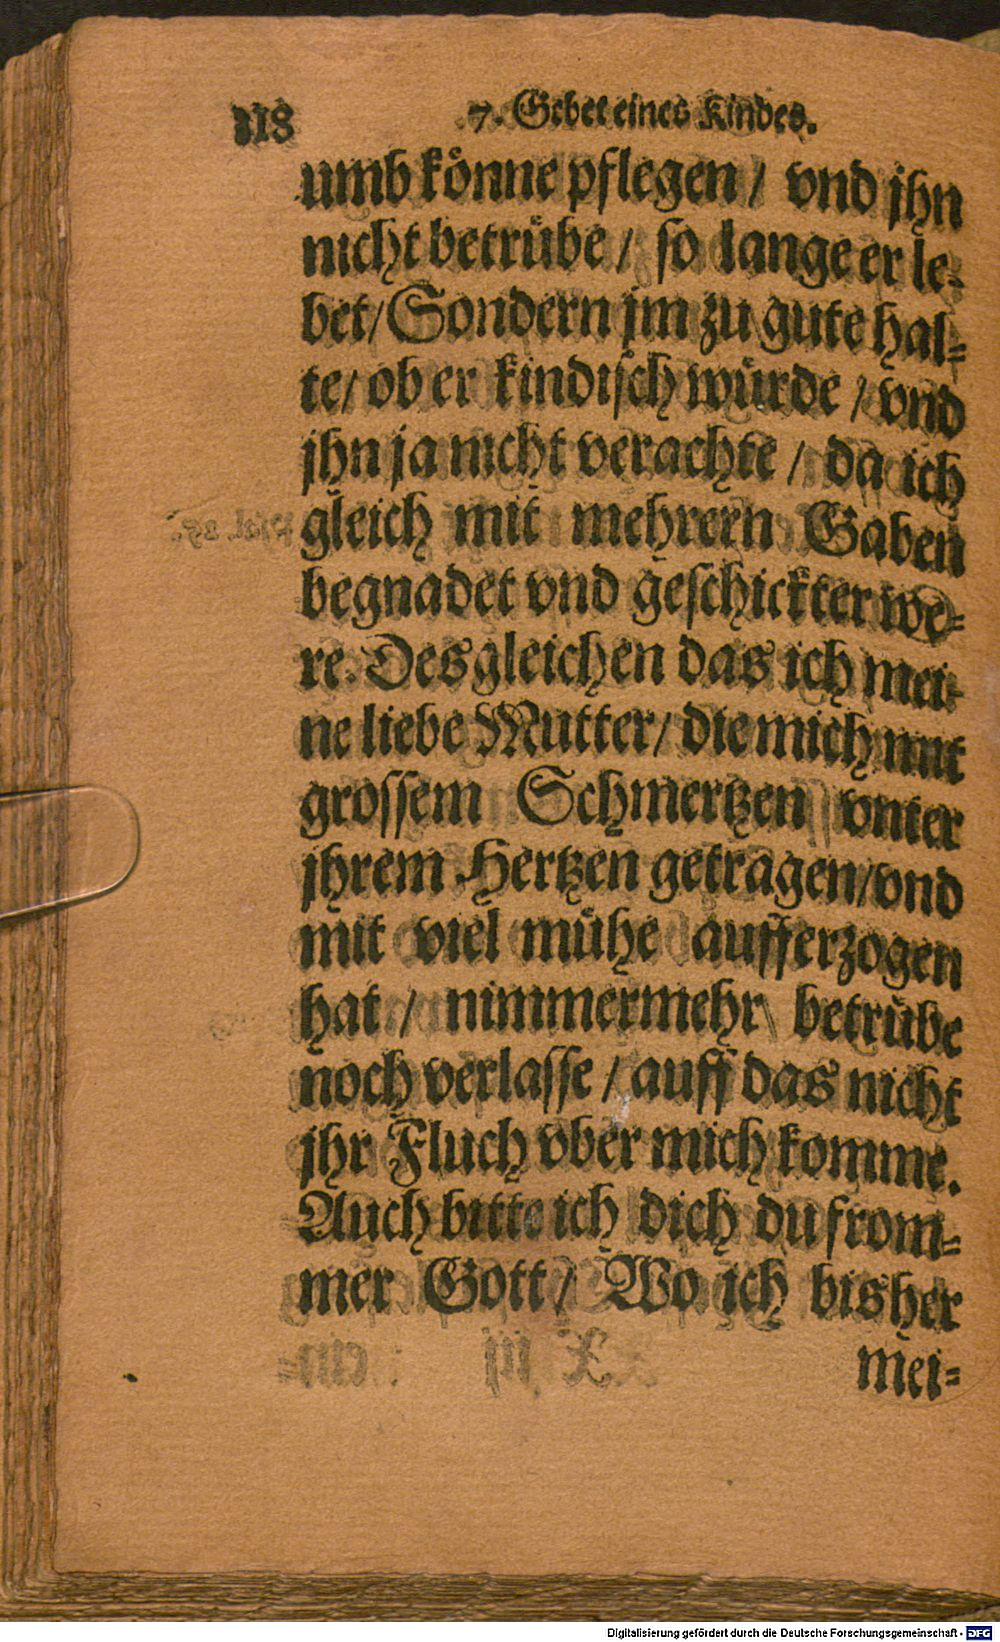 118 7. Gebet eines Kindes.
umb könne pflegen / vnd jhn
nicht betrübe / so lange er le-
bet / Sondern jm zu gute hal-
te / ob er kindisch würde / vnd
jhn ja nicht verachte / da ich
gleich mit mehrern Gaben
begnadet vnd geschickter we-
re. Desgleichen das ich mei-
ne liebe Mutter / die mich mit
grossem Schmertzen vnter
jhrem Hertzen getragen / vnd
mit viel mühe aufferzogen
hat / nimmermehr betrübe
noch verlasse / auff das nicht
jhr Fluch vber mich komme.
Auch bitte ich dich du from-
mer Gott / Wo ich bisher
mei-
Digitalisierung gefördert durch die Deutsche Forschungsgemeinschaft - DFG